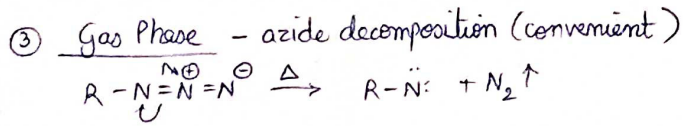 ③ Gas Phase - azide decomposition (convenient)
R-N=N⊕=N⊖ Δ→ R-N̈: + N₂↑